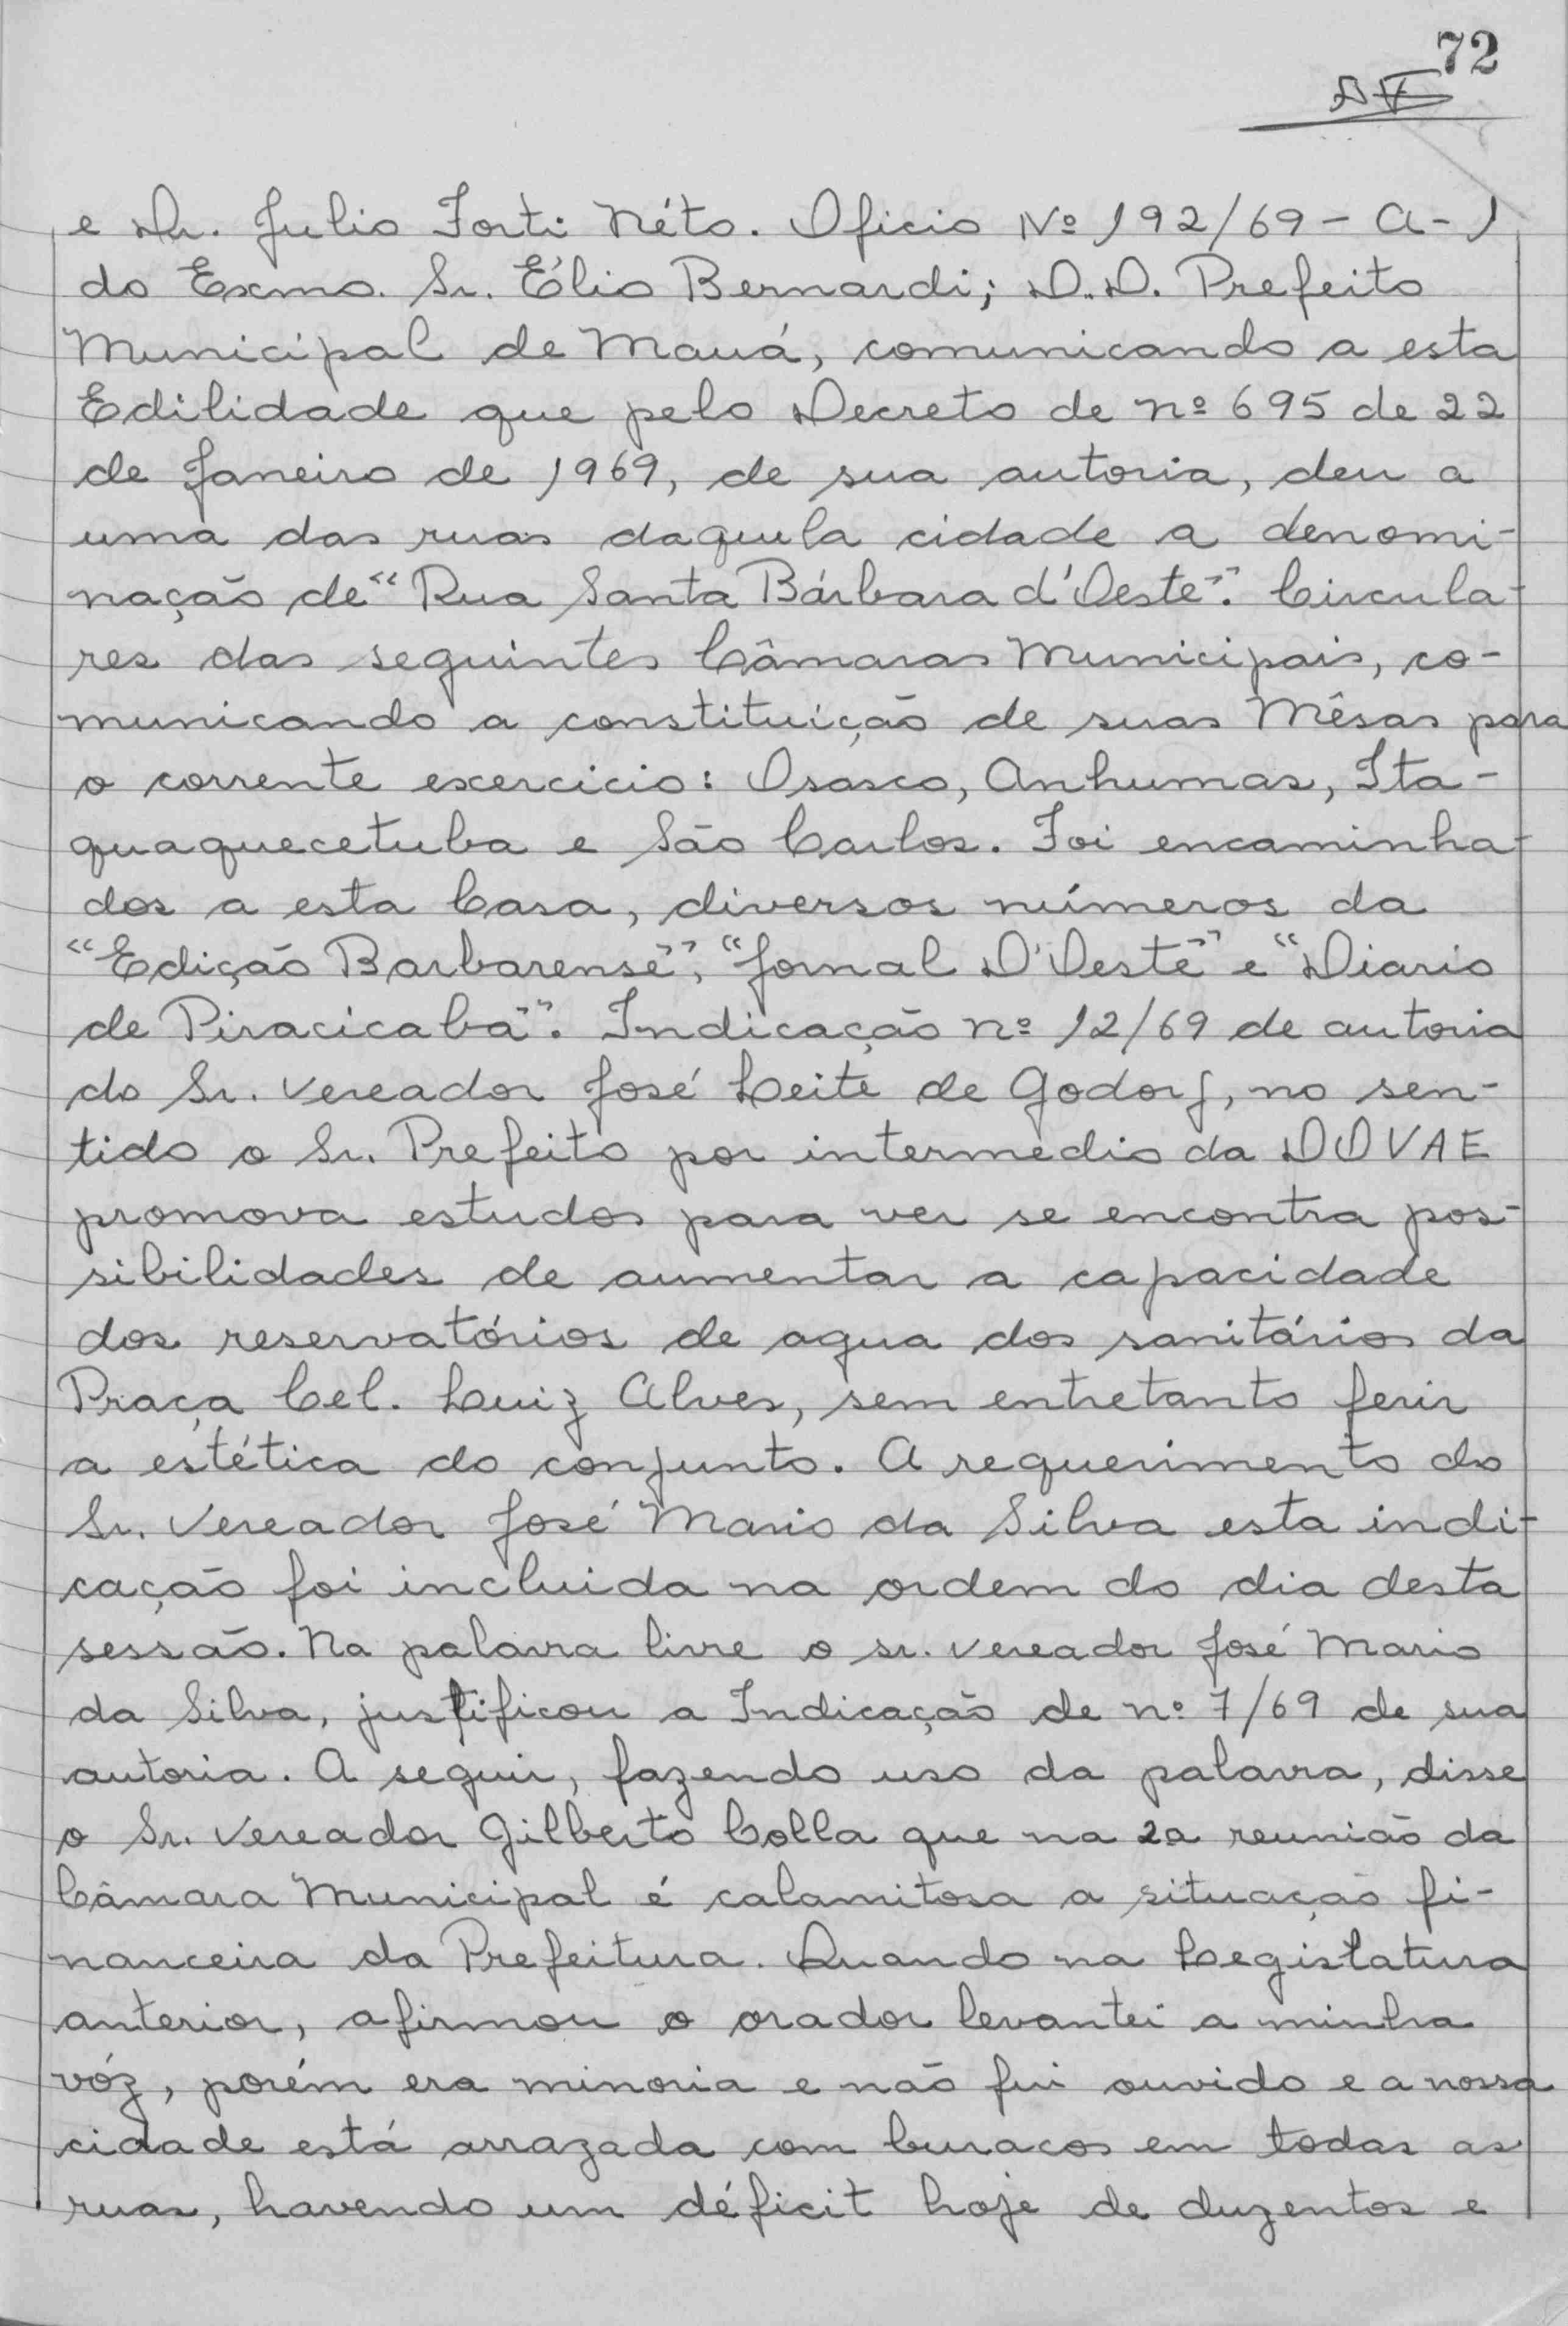 72
e Dr. Julio Forti Néto. Oficio Nº 192/69 - A-1
do Exmo. Sr. Élio Bernardi; D.D. Prefeito
Municipal de Mauá, comunicando a esta
Edilidade que pelo Decreto de nº 695 de 22
de Janeiro de 1969, de sua autoria, deu a
uma das ruas daquela cidade a denomi-
nação de "Rua Santa Bárbara d'Oeste". Circula-
res das seguintes Câmaras Municipais, co-
municando a constituição de suas Mêsas para
o corrente excercicio: Osasco, Anhumas, Ita-
quaquecetuba e São Carlos. Foi encaminha-
dos a esta Casa, diversos números da
"Edição Barbarense", "Jornal D'Oeste" e "Diario
de Piracicaba". Indicação nº 12/69 de autoria
do Sr. Vereador José Leite de Godoy, no sen-
tido o Sr. Prefeito por intermédio da DOVAE
promova estudos para ver se encontra pos-
sibilidades de aumentar a capacidade
dos reservatórios de agua dos sanitários da
Praça Cel. Luiz Alves, sem entretanto ferir
a estética do conjunto. A requerimento do
Sr. Vereador José Mario da Silva esta indi-
cação foi incluida na ordem do dia desta
sessão. Na palavra livre o sr. vereador José Mario
da Silva, justificou a Indicação de nº 7/69 de sua
autoria. A seguir, fazendo uso da palavra, disse
o Sr. Vereador Gilberto Colla que na 2a reunião da
Câmara Municipal é calamitosa a situação fi-
nanceira da Prefeitura. Quando na Legislatura
anterior, afirmou o orador levantei a minha
vóz, porém era minoria e não fui ouvido e a nossa
cidade está arrazada com buracos em todas as
ruas, havendo um déficit hoje de duzentos e